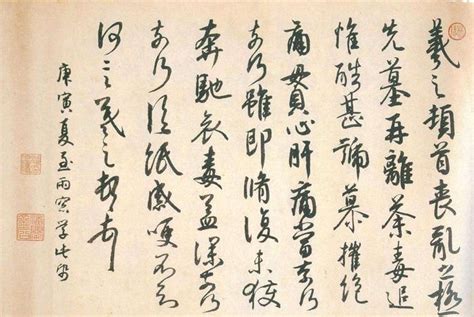 羲之頓首喪亂之極
先墓再離荼毒追
惟酷甚號慕摧絕
痛貫心肝痛當奈何
奈何雖即脩復未獲
奔馳哀毒益深奈何
奈何臨紙感哽不知
何言羲之頓首
庚寅夏至雨窗学此